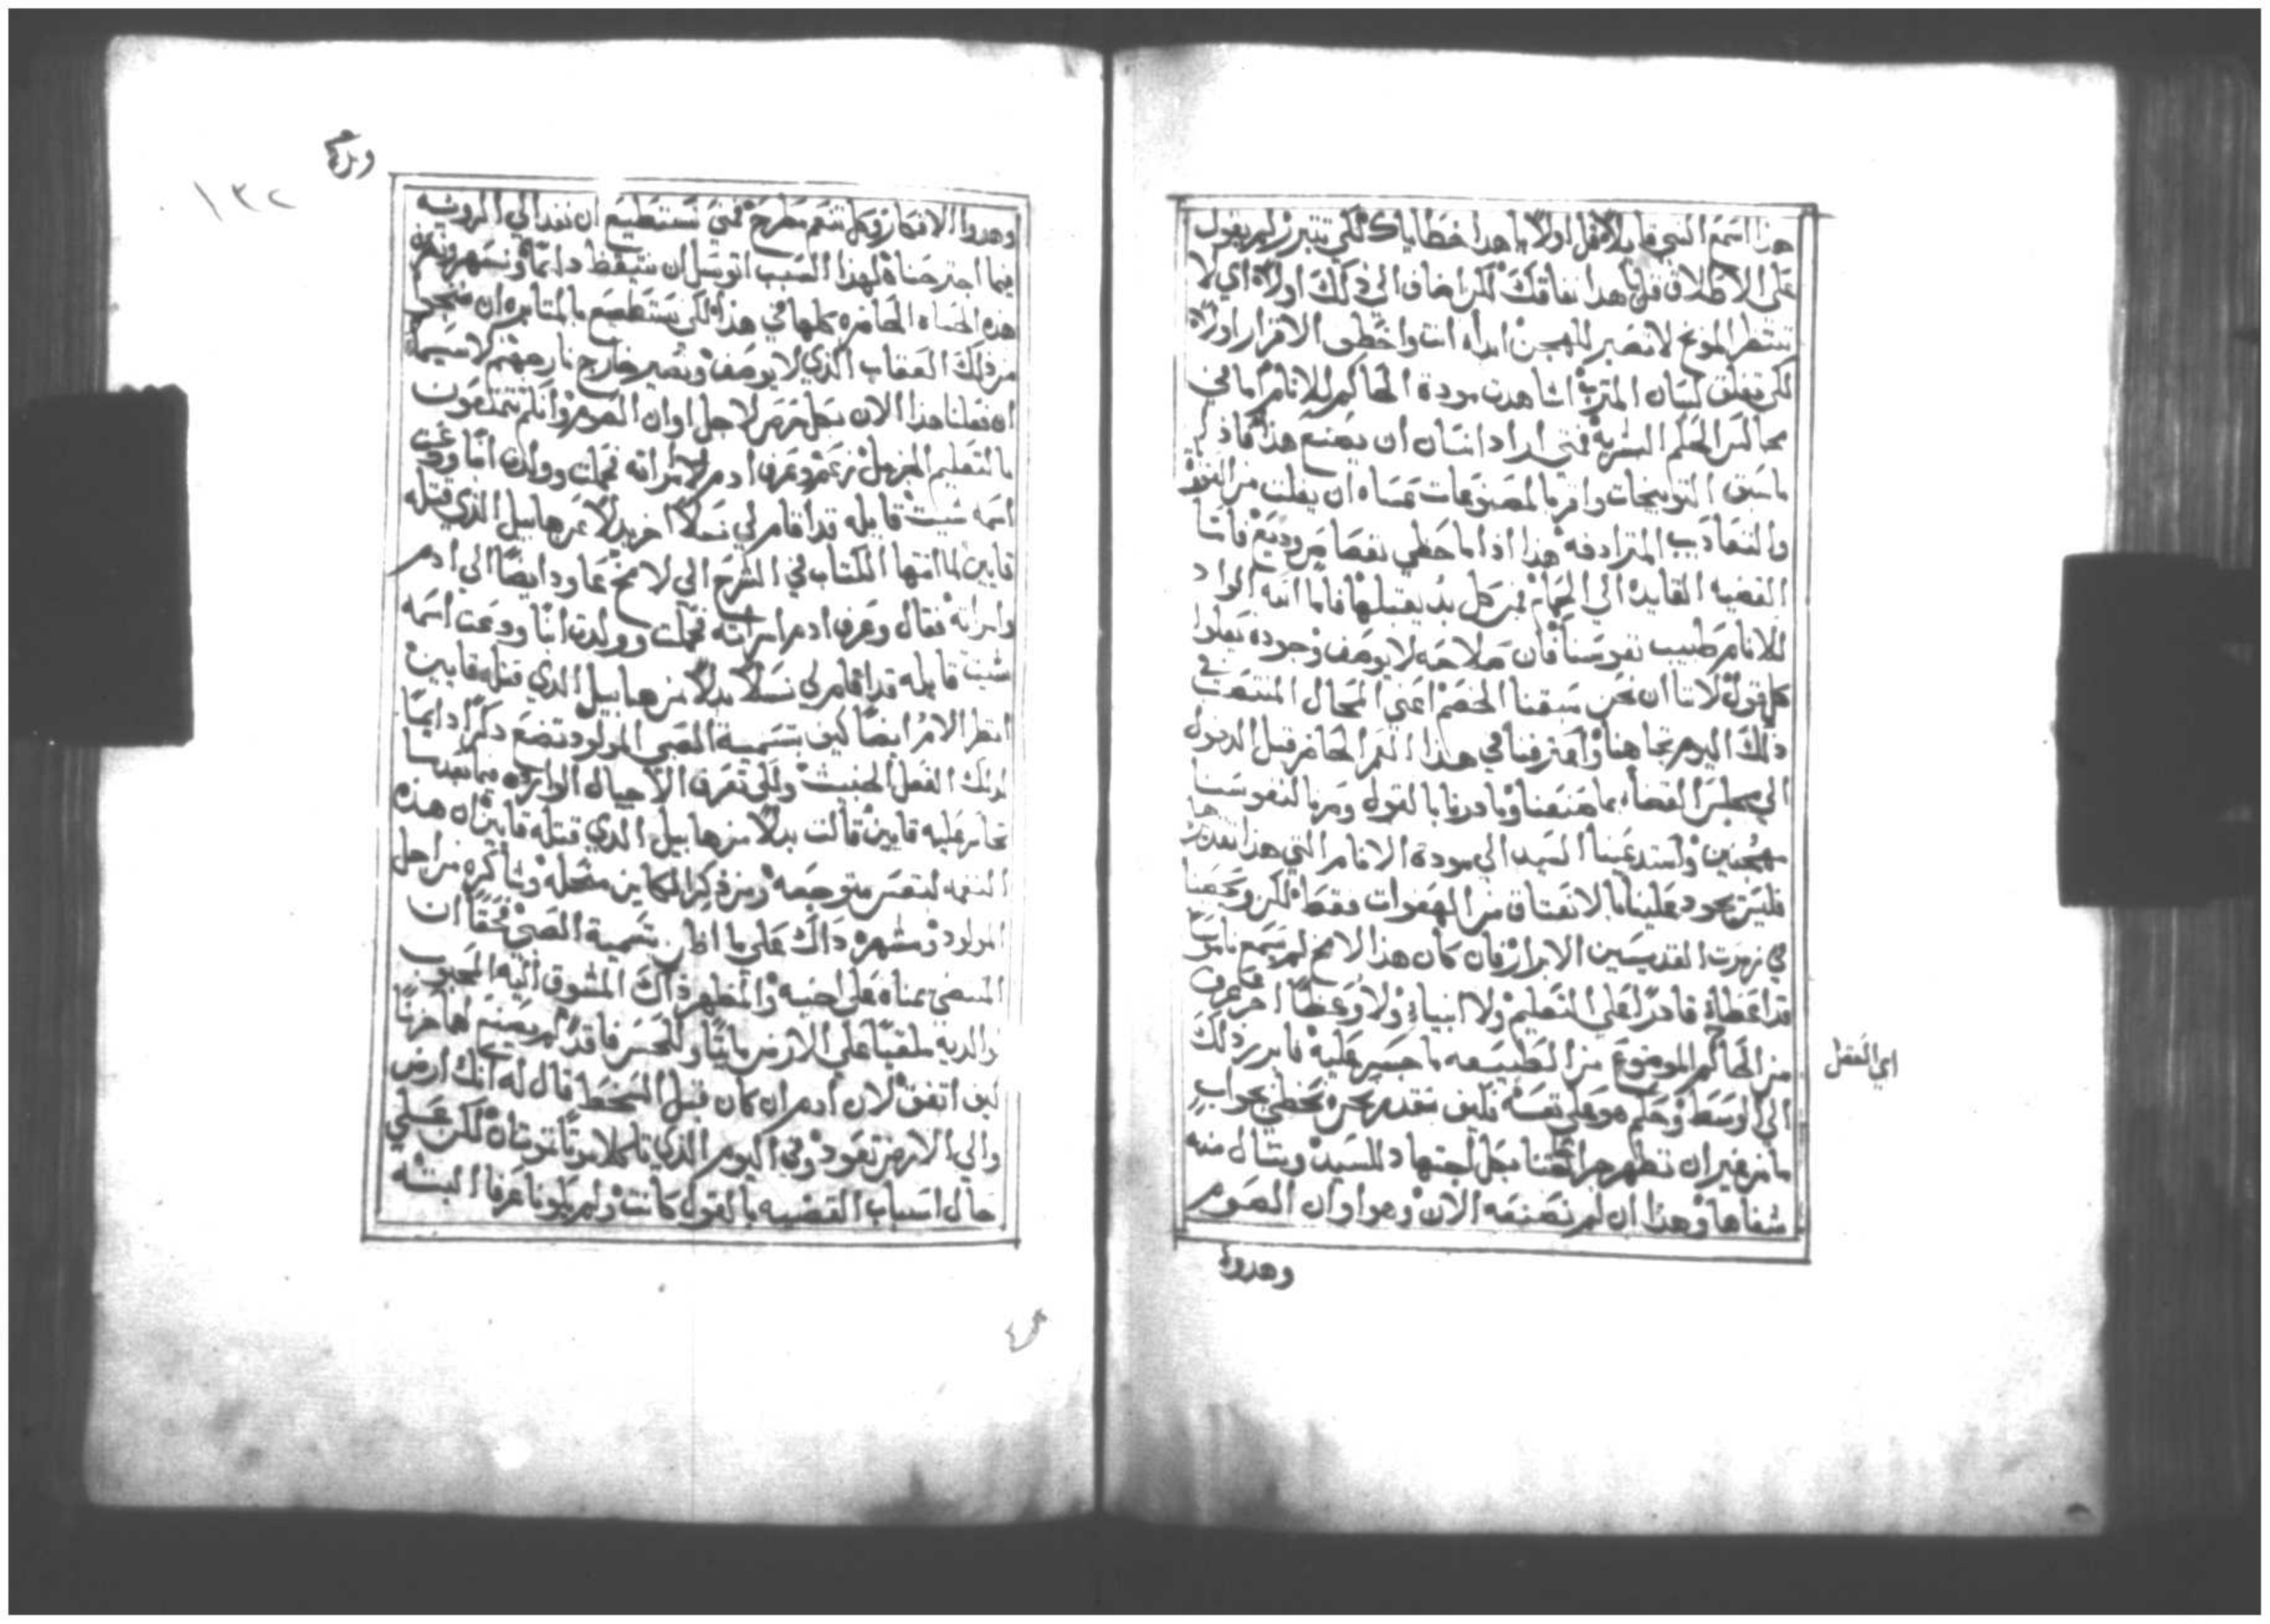 هذا اسمع النبي قايلاً قل اولاً يا هذا خطاياك لكي تتبرر لم يقول
على الاطلاق قل يا هذا نفاقك لكن اضاف الي ذلك اولاً اي لا
تنتظر الموبخ لا تصبر للمهجن ابدأ انت واخطف الاقرار اولاً
لكي تغلق لسان المثرب اشاهدت مودة الحاكم للانام اما في
مجالس الحكم البشرية فمتى اراد انسان ان يصنع هذا فاذكر
ماسبق التوبيخات واقر بالمصنوعات عساه ان يفلت من
والتعاذيب المترادفه هذا اذا ما حظي بقضا من وديع فاما
القضيه القايده الي الحمام فمن كل بد يقبلها فاما اله الواد
للانام طبيب نفوسنا فان صلاحه لا يوصف وجوده يعلوا
كل قول لاننا ان نحن سبقنا الخصم اعني المحال المنتصب في
ذلك اليوم تجاهنا واعترفنا في هذا العمر الحاضر قبل الدخول
الي مجلس القضا بما صنعنا وبادرنا بالقول وصرنا لنفوسنا
مهجنين واستدعينا السيد الي مودة الانام التي هذا تقديرها
فليس يجود علينا بالانعتاق من الهفوات فقط لكن ويحصينا
في زمرة القديسين الابرار فان كان هذا الامخ لم يسمع ناموسا
قد اعطاه قادر على التعليم ولا انبياء ولا وعظا اخر فعرف
من الحاكم الموضوع من الطبيعه ما جسر عليه فابرز ذلك
اي العقل
الي الوسط وحكم هو على نفسه فكيف نتقدم نحن نحظي بجواب
ما من غير ان نظهر جراحتنا بكل اجتهاد للسيد ونسال منه
شفاها وهذا ان لم نصنعه الان وهو اوان الصوم
وهدوا
١٣٢
وهدوا الافكار وكل تنعم مطرح فمتى نستطيع ان نغدا الي الرويه
فيما اجترحناه لهذا السبب اتوسل ان نتيقظ دايماً ونسهر ونفرغ
هذه الحياه الحاضره كلها في هذا لكي نستطيع بالمثابره ان ننجوا
من ذلك العقاب الذي لا يوصف ونصير خارج نار جهنم لا سيما
ان فعلنا هذا الان بكل حرص لاجل اوان الصوم وانكم تتمتعون
بالتعليم الجزيل زعم وعرف ادم امراته فحملت وولدت ابناً ودعت
اسمه شيت قايله قد اقام لي نسلاً اخر بدلاً عن هابيل الذي قتله
قايين لما انتها الكتاب في الشرح الي لامخ عاود ايضاً الي ادم
وامراته فقال وعرف ادم امراته فحملت وولدت ابناً ودعت اسمه
شيت قايله قد اقام لي نسلاً بدلاً من هابيل الذي قتله قايين
انظر الام ايضاً كيف بتسمية الصبي المولود تضع ذكراً دايماً
لذلك الفعل الخبيث ولكي تعرف الاجيال الوارده فيما بعد ما
تجاسر عليه قايين قالت بدلاً من هابيل الذي قتله قايين ان هذه
النغمه لنفس متوجعه ومن ذكر الكاين مقلقله وشاكره من اجل
المولود ومشهره ذاك على ما اظن بتسمية الصبي حقاً ان
والديه ملقياً على الارض مايتاً وللحسن فاقداً
كيف اتفق لان ادم ان كان قبل السخط قال له انك ارض
والي الارض تعود وفي اليوم الذي تاكلا موتاً تموتان لكن على
حال اسباب القضيه بالقول كانت ولم يكونا عرفا البته